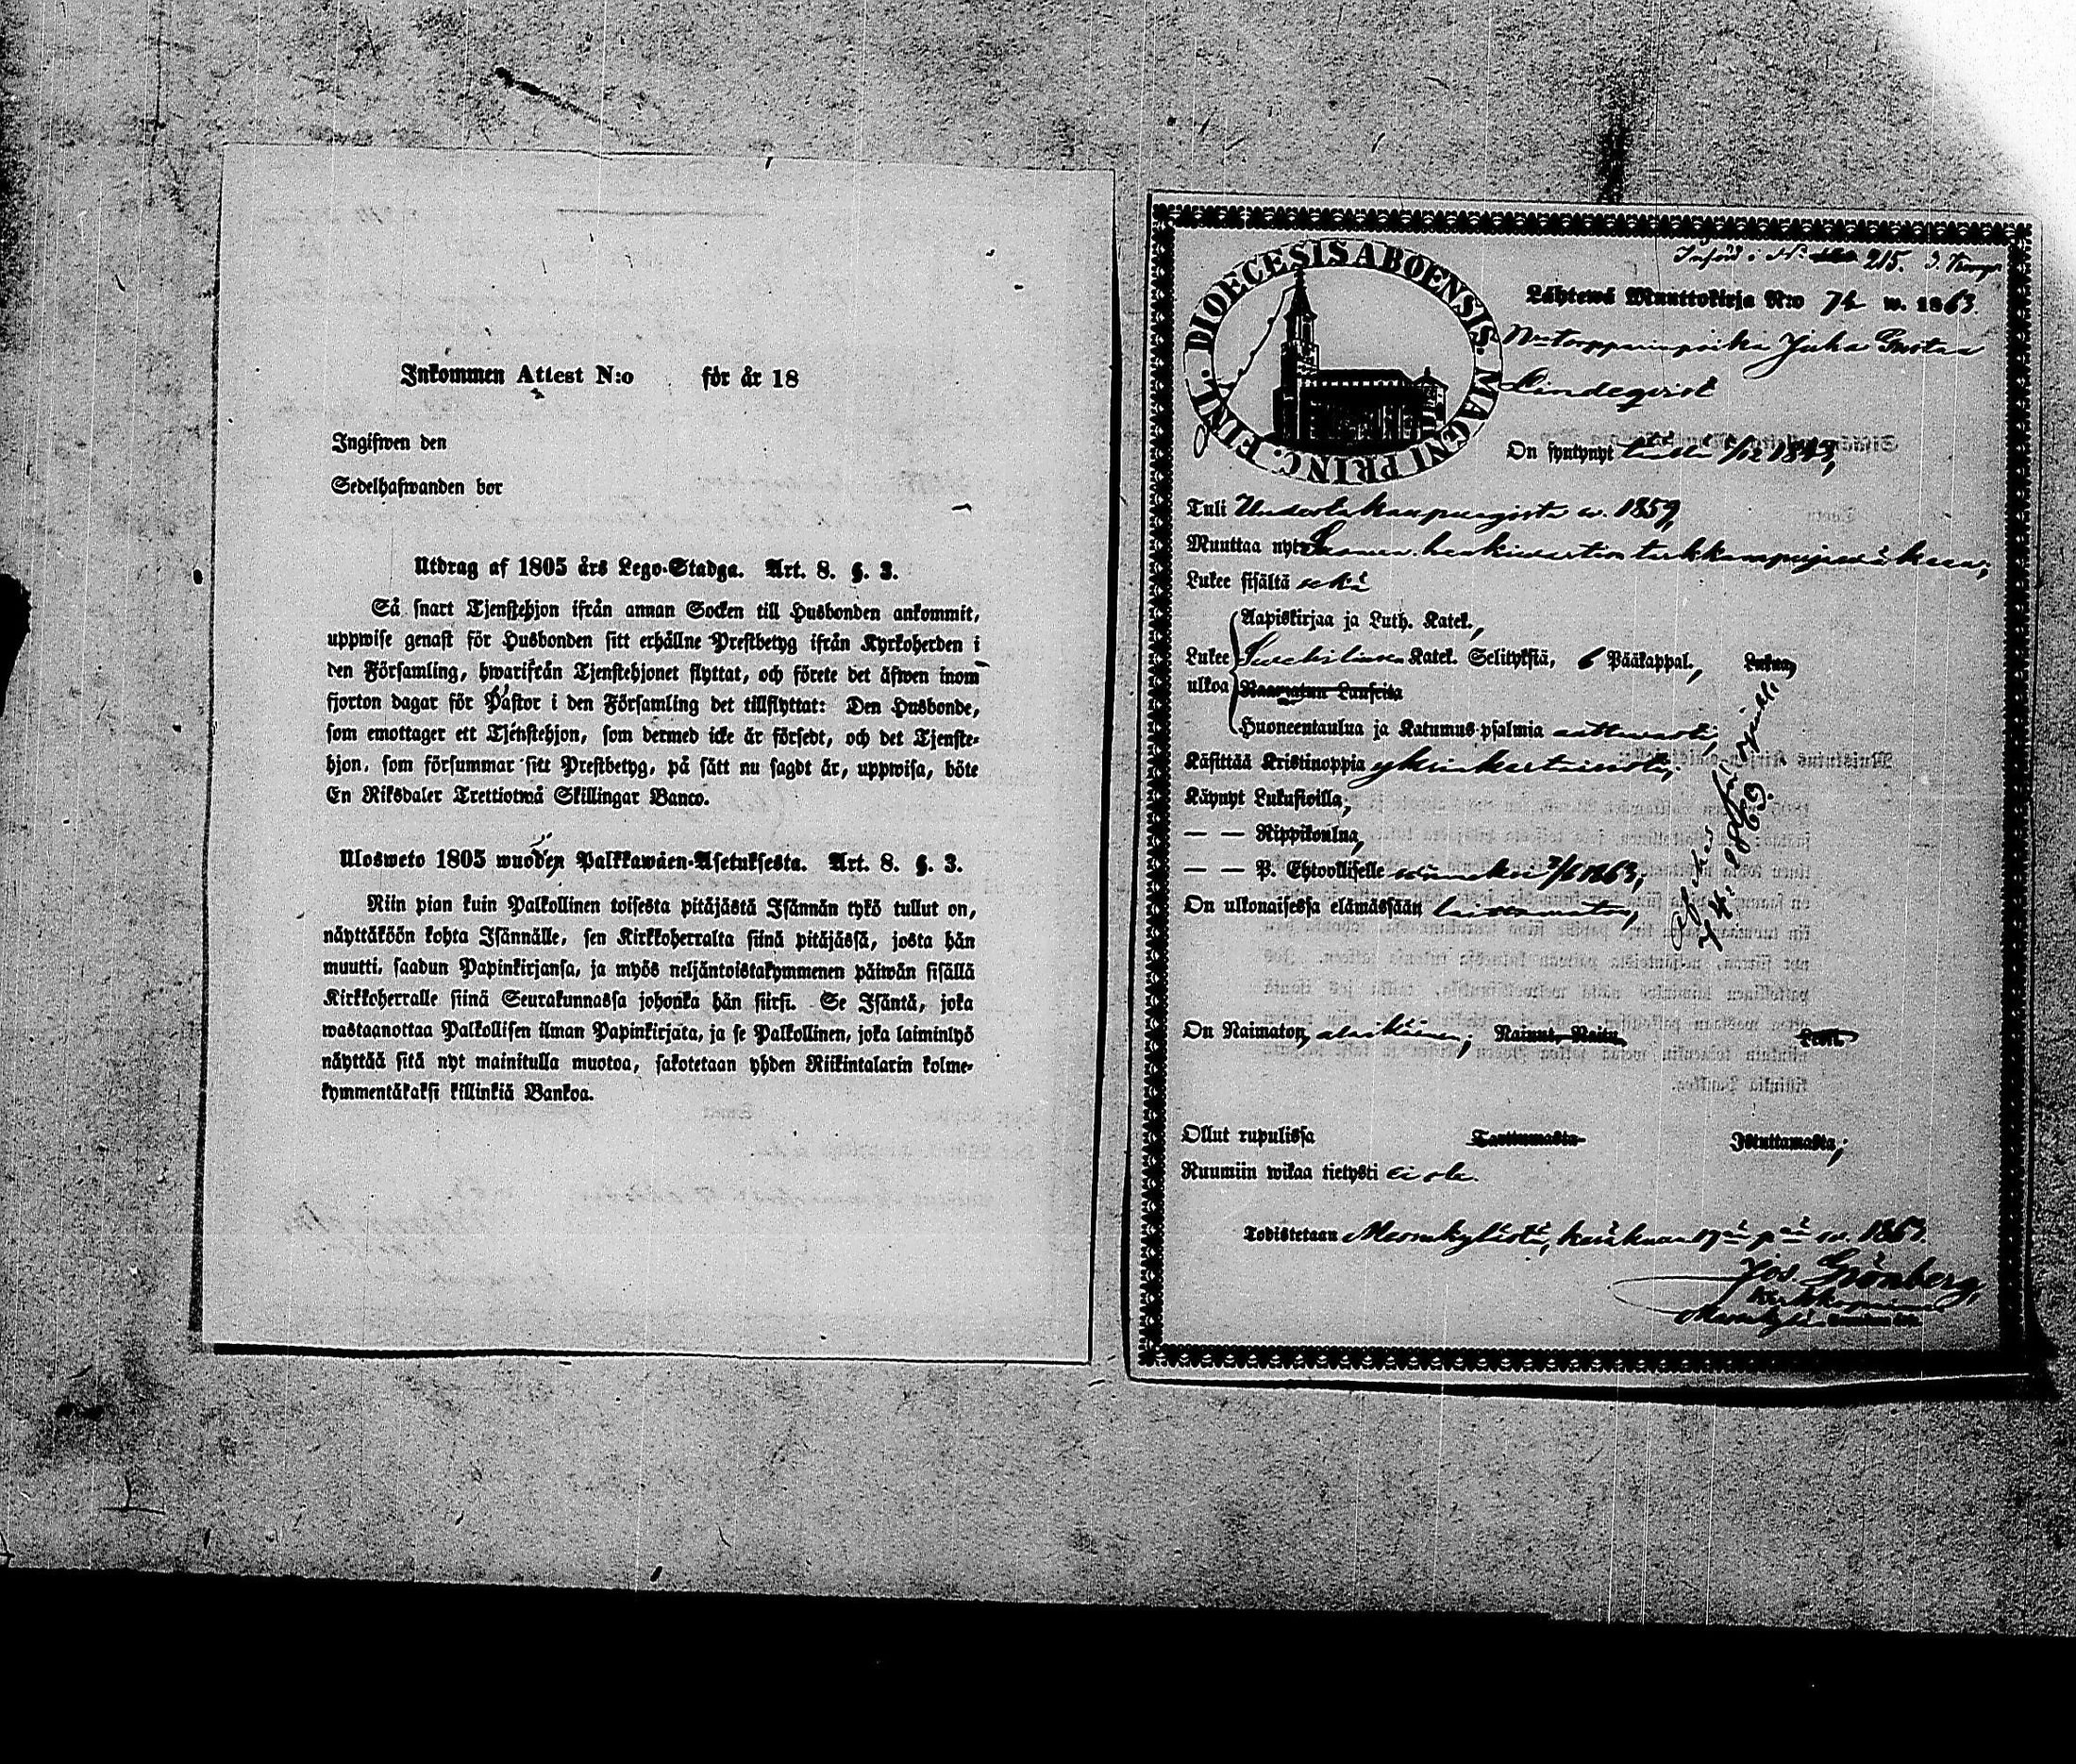 Inkommen Attest N:o för år 18
Ingifwen den
Sedelhafwanden bor
Utdrag af 1805 års Lego-Stadga. Art. 8. §. 3.
Så snart Tjenstehjon ifrån annan Socken till Husbonden ankommit,
uppwise genast för Husbonden sitt erhållne Prestbetyg ifrån Kyrkoherden i
den Församling, hwarifrån Tjenstehjonet flyttat, och förete det äfwen inom
fjorton dagar för Pastor i den Församling det tillflyttat: Den Husbonde,
som emottager ett Tjenstehjon, som dermed icke är försedt, och det Tjenste-
hjon, som försummar sitt Prestbetyg, på sätt nu sagdt är, uppwisa, böte
En Riksdaler Trettiotwå Skillingar Banco.
Ulosweto 1805 wuoden Palkkawäen-Asetuksesta. Art. 8. §. 3.
Niin pian kuin Palkollinen toisesta pitäjästä Isännän tykö tullut on,
näyttäköön kohta Isännälle, sen Kirkkoherralta siinä pitäjässä, josta hän
muutti, saadun Papinkirjansa, ja myös neljäntoistakymmenen päiwän sisällä
Kirkkoherralle siinä Seurakunnassa johonka hän siirsi. Se Isäntä, joka
wastaanottaa Palkollisen ilman Papinkirjata, ja se Palkollinen, joka laiminlyö
näyttää sitä nyt mainitulla muotoa, sakotetaan yhden Riikintalarin kolme-
kymmentäkaksi killinkiä Bankoa.
DIOECESIS ABOENSIS. MAGNI PRINC. FINL.
Införd i N:o 215.
Lähtewä Muuttokirja N:o 72 w. 1863.
Torpparinpoika Juha Gustaa
Lindeqvist
On syntynyt 1843,
Tuli Uudestakaupungista w. 1859,
Muuttaa nyt Suomen henkiwartion tarkkampujawäkeen;
Lukee sisältä sekä
Aapiskirjaa ja Luth. Katek.,
Lukee Katek. Selityksiä, 6 Pääkappal., Lukua,
ulkoa Raamatun Lauseita
Huoneentaulua ja Katumus-psalmia auttawasti;
Käsittää Kristinoppia yksinkertaisesti;
Käynyt Lukusioilla;
— — Rippikoulua,
— — P. Ehtoollisella wiimeksi 7/6 1863;
On ulkonaisessa elämässään laittamaton,
On Naimaton, alaikäinen; Nainut, Naitu, Leski.
Ollut rupulissa Tarttumasta Istuttamasta;
Ruumiin wikaa tietysti ei ole.
Todistetaan Merimskylästä, kesäkuun 17nä pnä w. 1863.
Jos. Grönberg,